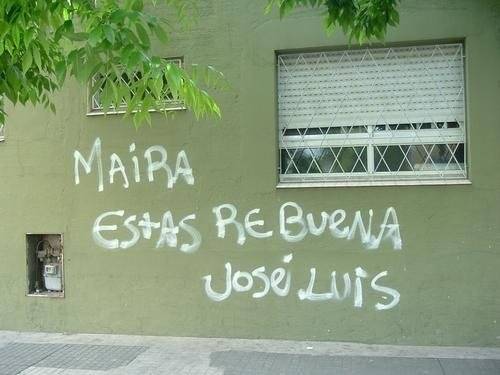 MAiRA
EStAS RE BUENA
JoSé LUiS